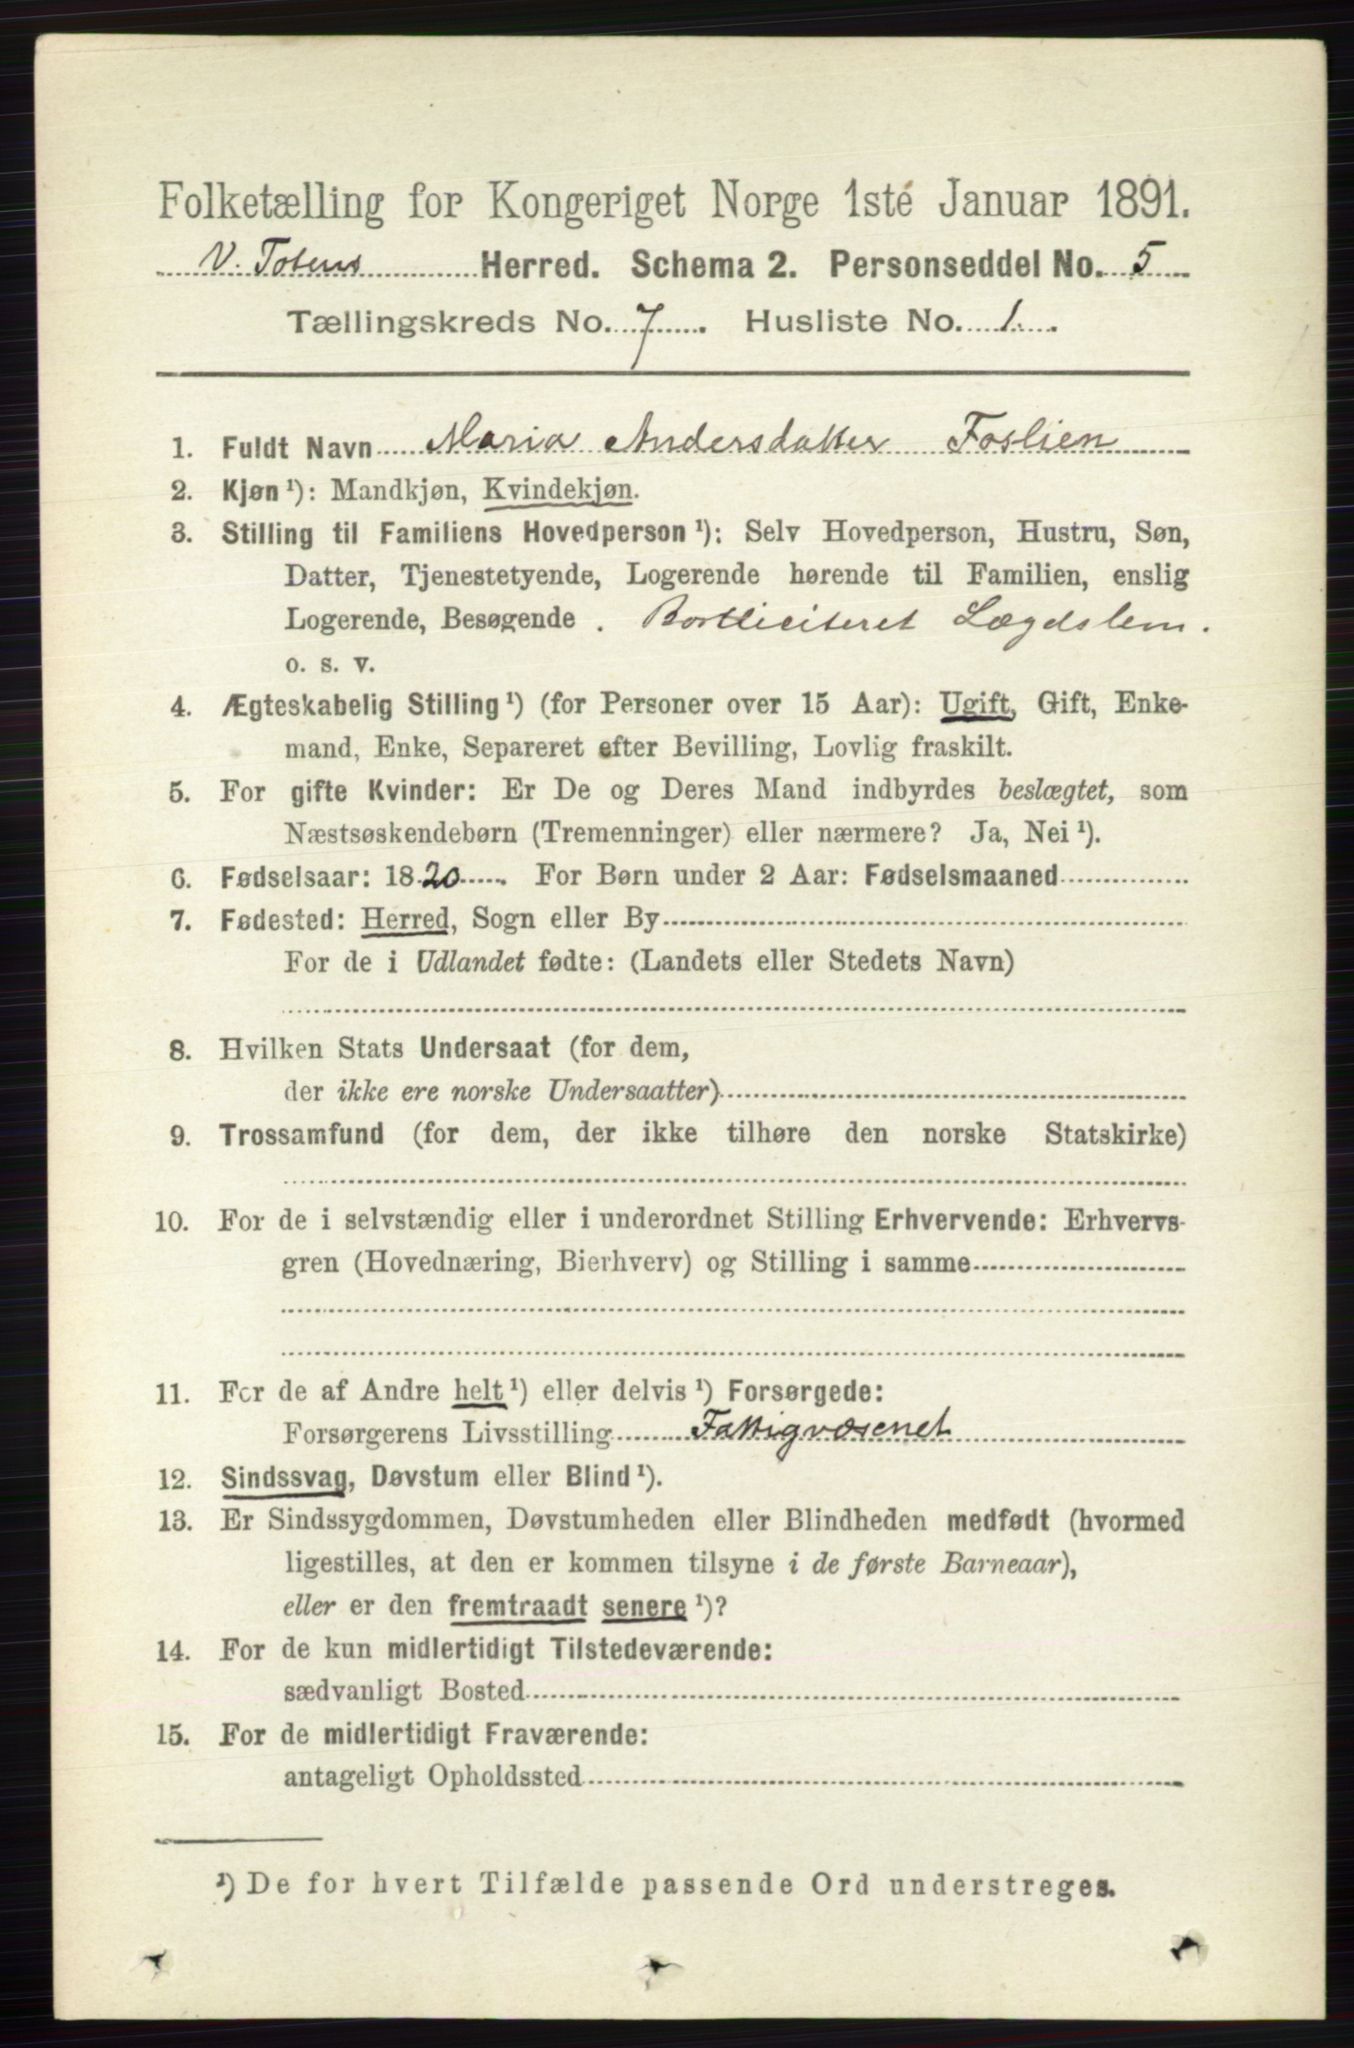 Folketælling for Kongeriget Norge 1ste Januar 1891.
V. Totens Herred. Schema 2. Personseddel No. 5
Tællingskreds No. 7. Husliste No. 1.
1. Fuldt Navn Maria Andersdatter Foslien
2. Kjøn ¹): Mandkjøn, Kvindekjøn.
3. Stilling til Familiens Hovedperson ¹): Selv Hovedperson, Hustru, Søn,
Datter, Tjenestetyende, Logerende hørende til Familien, enslig
Logerende, Besøgende . Bortliciteret Lægdslem.
o. s. v.
4. Ægteskabelig Stilling ¹) (for Personer over 15 Aar): Ugift, Gift, Enke-
mand, Enke, Separeret efter Bevilling, Lovlig fraskilt.
5. For gifte Kvinder: Er De og Deres Mand indbyrdes beslægtet, som
Næstsøskendebørn (Tremenninger) eller nærmere? Ja, Nei ¹).
6. Fødselsaar: 1820. For Børn under 2 Aar: Fødselsmaaned
7. Fødested: Herred, Sogn eller By
For de i Udlandet fødte: (Landets eller Stedets Navn)
8. Hvilken Stats Undersaat (for dem,
der ikke ere norske Undersaatter)
9. Trossamfund (for dem, der ikke tilhøre den norske Statskirke)
10. For de i selvstændig eller i underordnet Stilling Erhvervende: Erhvervs-
gren (Hovednæring, Bierhverv) og Stilling i samme
11. For de af Andre helt ¹) eller delvis ¹) Forsørgede:
Forsørgerens Livsstilling Fattigvæsenet
12. Sindssvag, Døvstum eller Blind ¹).
13. Er Sindssygdommen, Døvstumheden eller Blindheden medfødt (hvormed
ligestilles, at den er kommen tilsyne i de første Barneaar),
eller er den fremtraadt senere ¹)?
14. For de kun midlertidigt Tilstedeværende:
sædvanligt Bosted
15. For de midlertidigt Fraværende:
antageligt Opholdssted
¹) De for hvert Tilfælde passende Ord understreges.